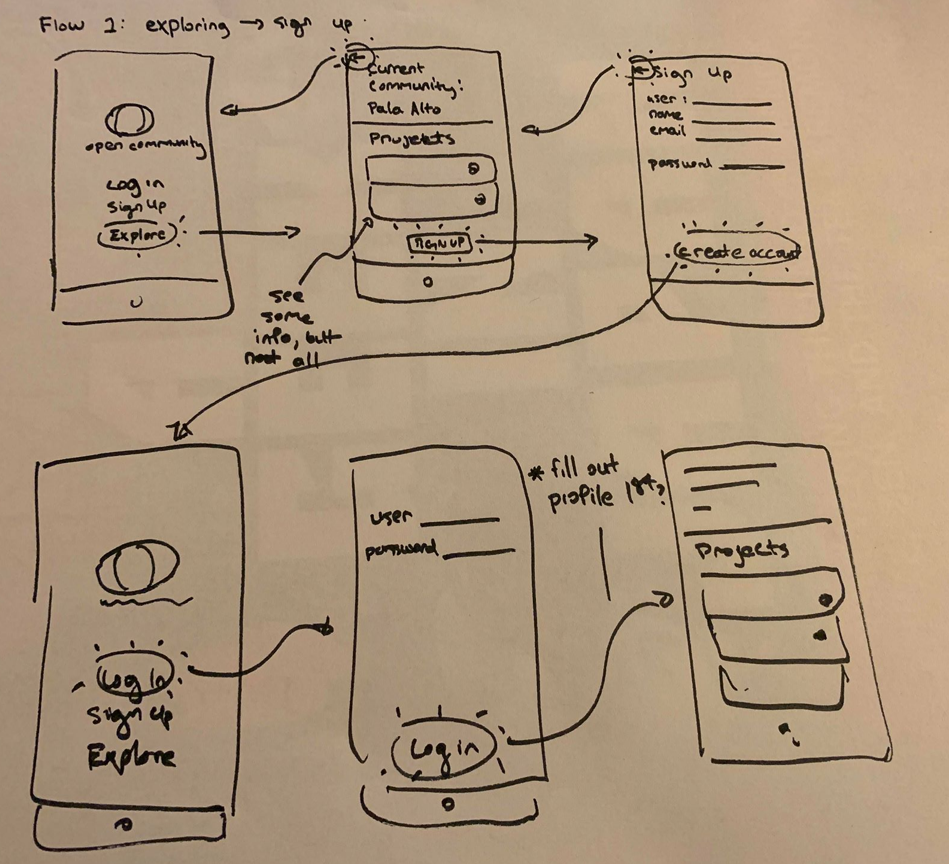 Flow 1: exploring → sign up
open community
Log in
Sign Up
Explore
Current
community:
Pala Alto
Projects
SIGN UP
see
some
info, but
not all
← Sign Up
user:
name
email
password
create account
Log In
Sign Up
Explore
user
password
Log in
* fill out
profile 1st?
Projects